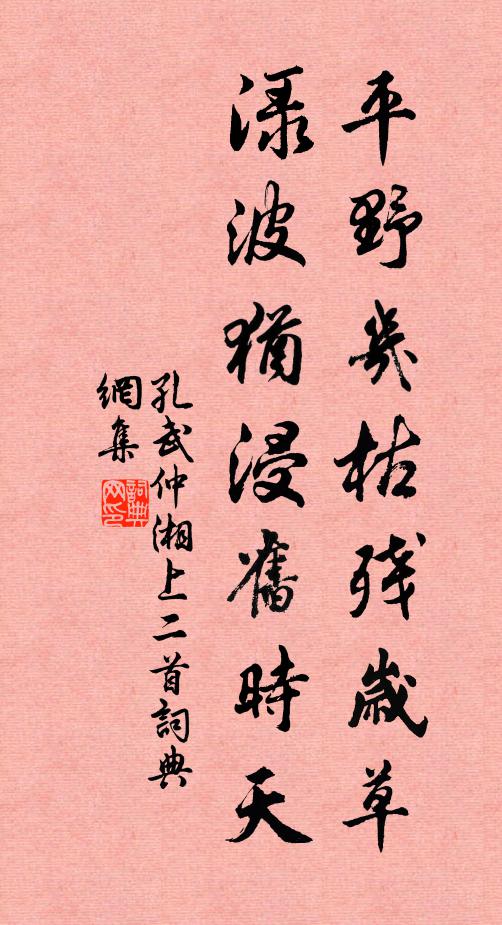 平野幾枯殘歲草
渌波猶浸舊時天
孔武仲湘上二首詞典
網集
詞典网印